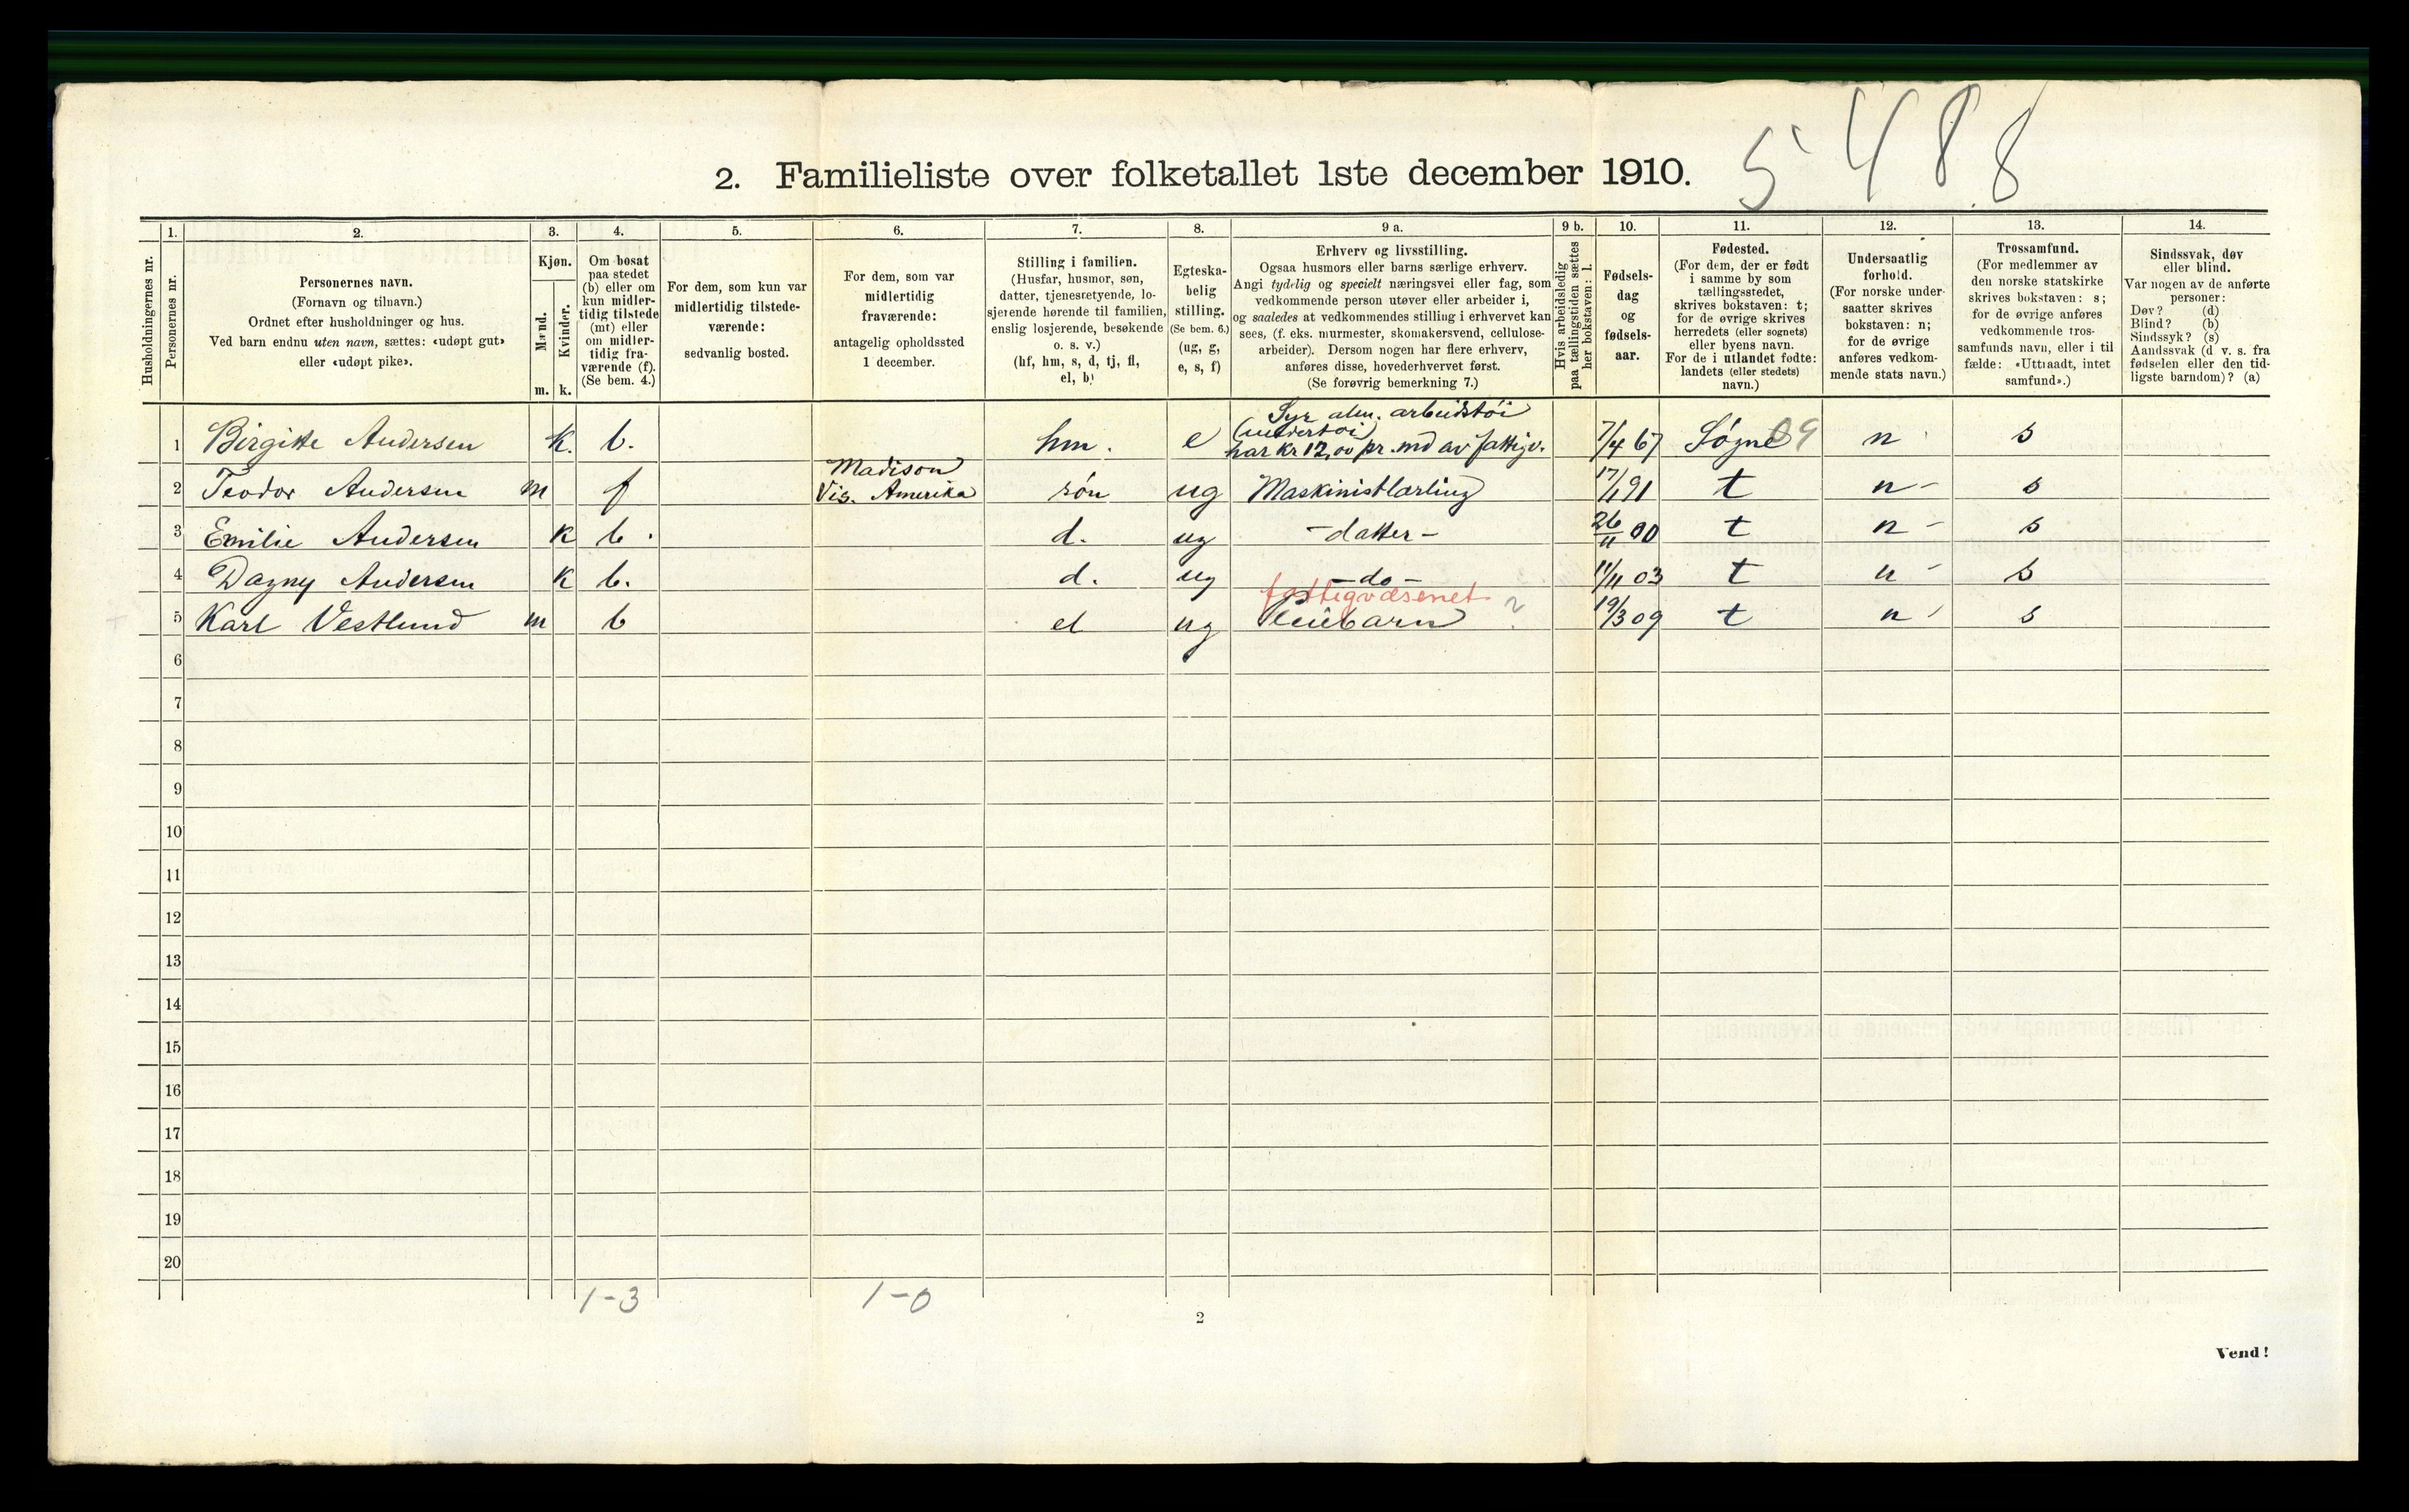 5 4 8 8
2. Familieliste over folketallet 1ste december 1910.
1. 2. 3. 4. 5. 6. 7. 8. 9 a. 9 b. 10. 11. 12. 13. 14.
Husholdningernes nr.
Personernes nr.
Personernes navn.
(Fornavn og tilnavn.)
Ordnet efter husholdninger og hus.
Ved barn endnu uten navn, sættes: «udøpt gut»
eller «udøpt pike».
Kjøn.
Mænd.
Kvinder.
m. k.
Om bosat
paa stedet
(b) eller om
kun midler-
tidig tilstede
(mt) eller
om midler-
tidig fra-
værende (f).
(Se bem. 4.)
For dem, som kun var
midlertidig tilstede-
værende:
sedvanlig bosted.
For dem, som var
midlertidig
fraværende:
antagelig opholdssted
1 december.
Stilling i familien.
(Husfar, husmor, søn,
datter, tjenesretyende, lo-
sjerende hørende til familien,
enslig losjerende, besøkende
o. s. v.)
(hf, hm, s, d, tj, fl,
el, b)
Egteska-
belig
stilling.
(Se bem. 6.)
(ug, g,
e, s, f)
Erhverv og livsstilling.
Ogsaa husmors eller barns særlige erhverv.
Angi tydelig og specielt næringsvei eller fag, som
vedkommende person utøver eller arbeider i,
og saaledes at vedkommendes stilling i erhvervet kan
sees, (f. eks. murmester, skomakersvend, cellulose-
arbeider). Dersom nogen har flere erhverv,
anføres disse, hovederhvervet først.
(Se forøvrig bemerkning 7.)
Hvis arbeidsledig
paa tællingstiden sættes
her bokstaven: l.
Fødsels-
dag
og
fødsels-
aar.
Fødested.
(For dem, der er født
i samme by som
tællingsstedet,
skrives bokstaven: t;
for de øvrige skrives
herredets (eller sognets)
eller byens navn.
For de i utlandet fødte:
landets (eller stedets)
navn.)
Undersaatlig
forhold.
(For norske under-
saatter skrives
bokstaven: n;
for de øvrige
anføres vedkom-
mende stats navn.)
Trossamfund.
(For medlemmer av
den norske statskirke
skrives bokstaven: s;
for de øvrige anføres
vedkommende tros-
samfunds navn, eller i til
fælde: «Uttraadt, intet
samfund».)
Sindssvak, døv
eller blind.
Var nogen av de anførte
personer:
Døv? (d)
Blind? (b)
Sindssyk? (s)
Aandssvak (d v. s. fra
fødselen eller den tid-
ligste barndom)? (a)
Syr alm. arbeidstöi
(undertöi)
1 Birgitte Andersen k. b. hm. e har kr 12,00 pr. md av fattigv. 7/4 67 Søgne 09 n s
Madison
2 Teodor Andersen m f Vis. Amerika søn ug Maskinistlærling 17/1 91 t n - s
3 Emilie Andersen k b. d. ug - datter - 26/11 00 t n - s
4 Dagny Andersen k b. d. ug - do - 11/11 03 t n - s
fattigvæsenet
5 Karl Vestlund m b el ug Pleiebarn ? 19/3 09 t n - s
6
7
8
9
10
11
12
13
14
15
16
17
18
19
20
1-3 1-0
2
Vend!